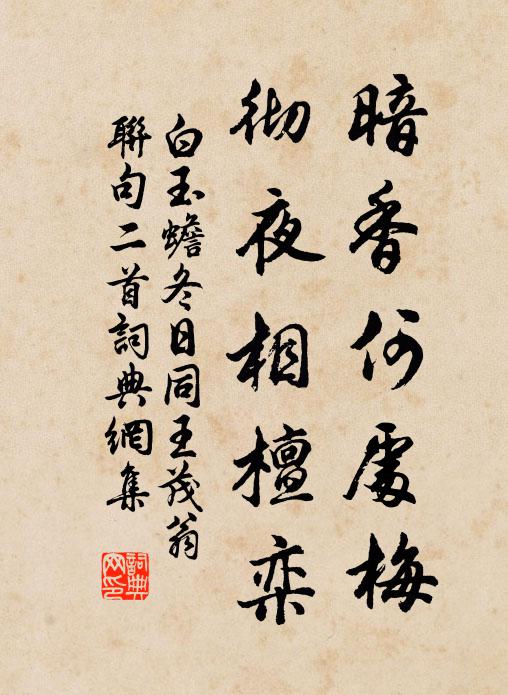 暗香何處梅
彻夜相檀栾
白玉蟾冬日同王茂翁
聯句二首詞典網集
詞典
网印